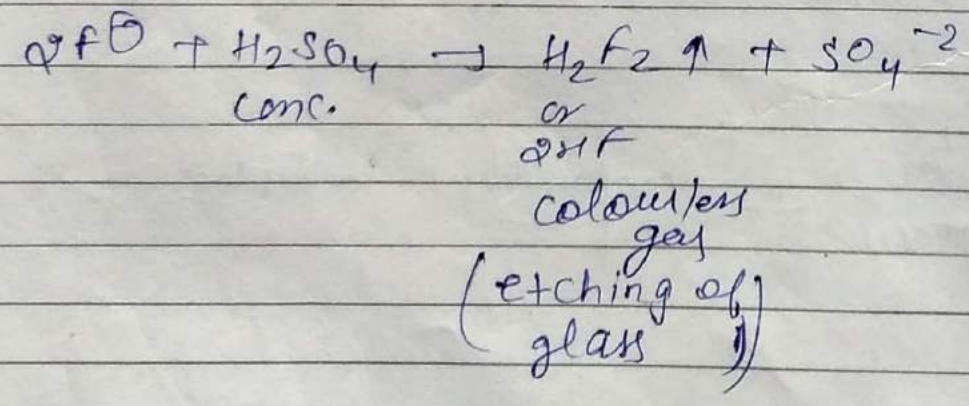 2F⊖ + H₂SO₄ → H₂F₂ ↑ + SO₄⁻²
conc. or
2HF
colourless
gas
(etching of
glass)